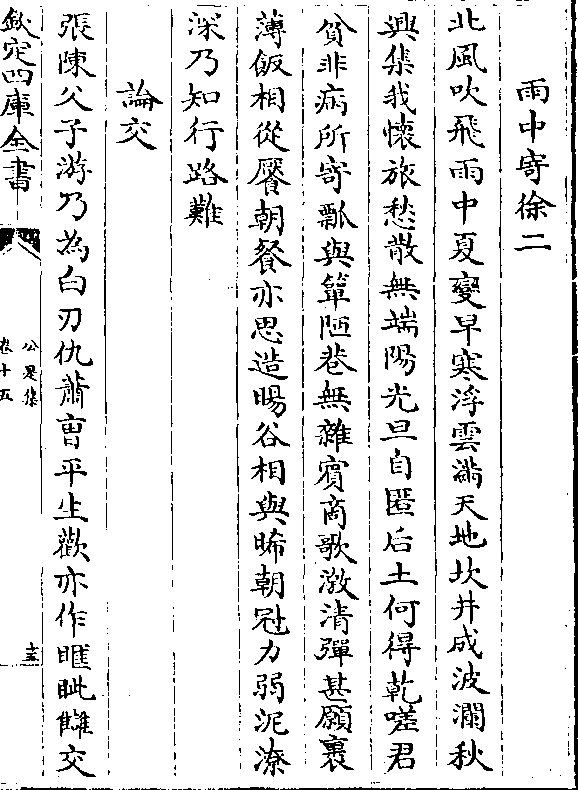 雨中寄徐二
北風吹飛雨中夏變早寒浮雲滿天地坎井成波瀾秋
興集我懷旅愁散無端陽光旦自匿后土何得乾嗟君
貧非病所寄瓢與簞陋巷無雜賓商歌激清彈甚願裹
薄飯相從饜朝餐亦思造暘谷相與晞朝冠力弱泥潦
深乃知行路難
論交
張陳父子游乃為白刃仇蕭曹平生歡亦作睚眦讎交
欽定四庫全書
公是集
卷十五